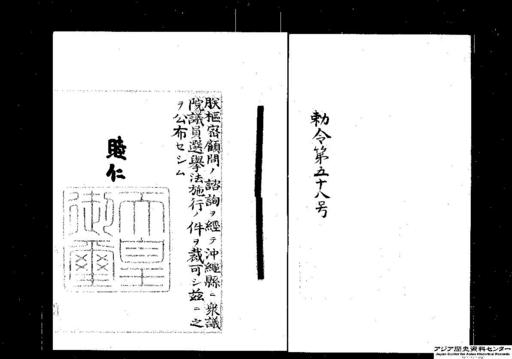 勅令第五十八号
朕樞密顧問ノ諮詢ヲ經テ沖繩縣ニ衆議
院議員選擧法施行ノ件ヲ裁可シ茲ニ之
ヲ公布セシム
睦仁
天皇
御璽
アジア歴史資料センター
Japan Center for Asian Historical Records